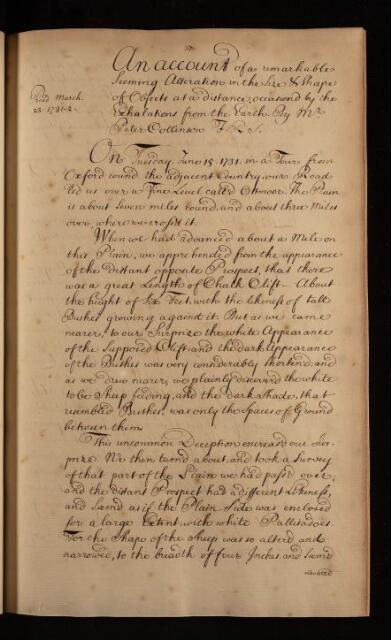 An account of a remarkable
Seeming Alteration in the Size & Shape
of Objects at a distance, occasiond by the
Exhalations from the Earth. By Mr.
Peter Collinson F. R. S.
Read March
23 1731-2.
On Tuesday June 15 1731. in a Tour from
Oxford round the adjacent Country, our Road
led us over a fine Level called Otmoor. The Plain
is about Seven miles round, and about three Miles
over, where we crosst it.
When we had advanced about a Mile on
this Plain, we apprehended from the appearance
of the distant opposite Prospect, that there
was a great Length of Chalk Clift. About
the height of Six feet, with the likeness of tall
Bushes growing against it. But as we came
nearer, to our Surprize the white Appearance
of the Supposed Clift and the dark Appearance
of the Bushes was very considerably shortend, and
as we drew nearer, we plainly discernd the white
to be Sheep feeding, and the dark Shades, that
resembled Bushes, was only the Spaces of Ground
between them.
This uncommon Deception encreasd our Sur-
prize. We then turnd about, and took a Survey
of that part of the Plain we had past over,
and the distant Prospect had a different Likeness,
and Seemd as if the Plain Side was enclosed
for a large Extent with white Pallisadoes.
For the Shape of the Sheep was so alterd and
narrowed, to the breadth of four Inches and Seemd